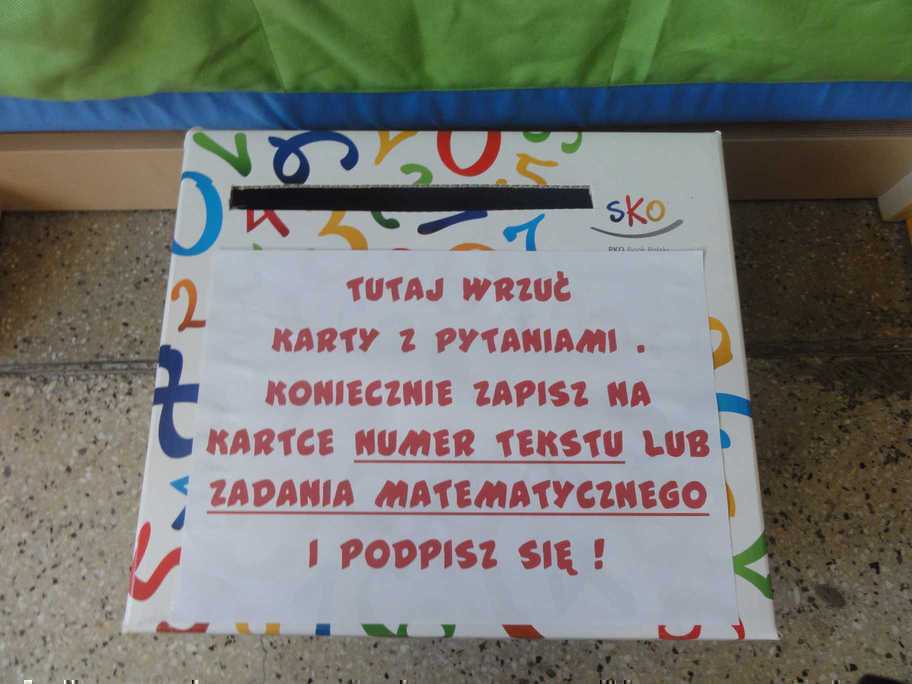 SKO
PKO Bank Polski
TUTAJ WRZUĆ
KARTY Z PYTANIAMI .
KONIECZNIE ZAPISZ NA
KARTCE NUMER TEKSTU LUB
ZADANIA MATEMATYCZNEGO
I PODPISZ SIĘ !